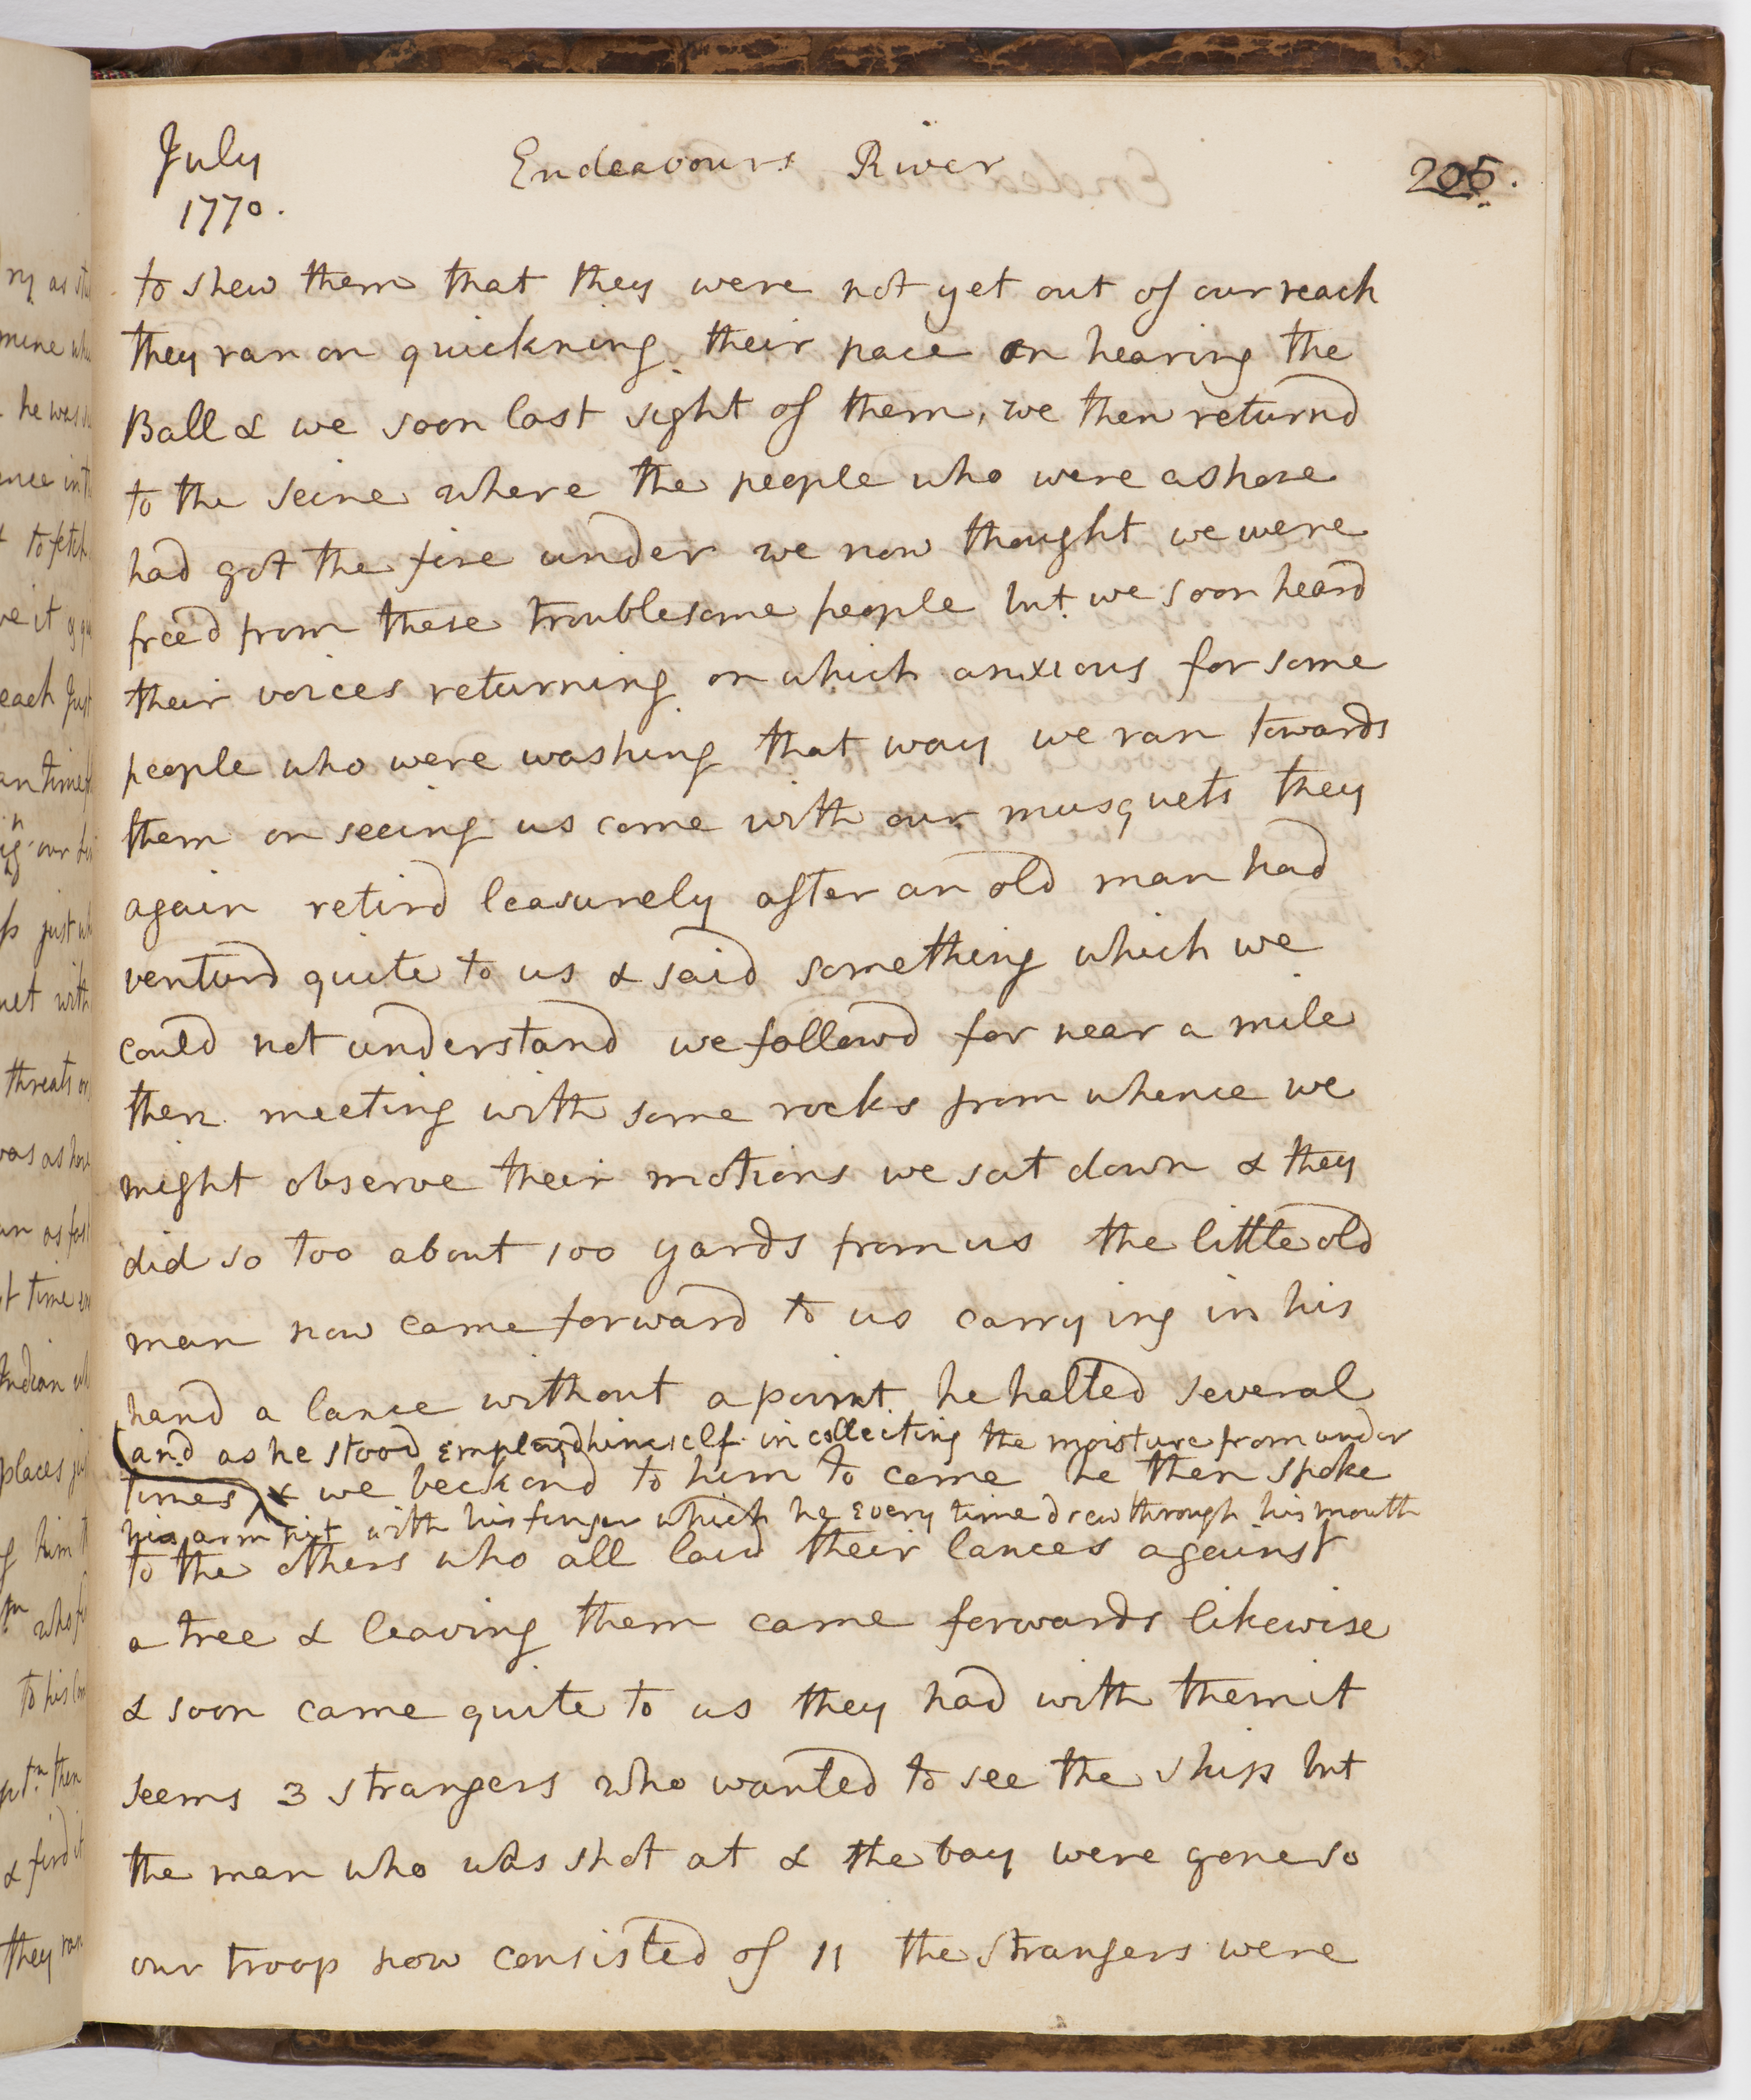 July
1770.
Endeavours River
205.
to shew them that they were not yet out of our reach
they ran on quickning their pace on hearing the
Ball & we soon lost sight of them, we then returnd
to the Seine where the people who were ashore
had got the fire under we now thought we were
freed from these troublesome people but we soon heard
their voices returning on which anxious for some
people who were washing that way we ran towards
them on seeing us come with our musquets they
again retird leasurely after an old man had
venturd quite to us & said something which we
could not understand we followd for near a mile
then meeting with some rocks from whence we
might observe their motions we sat down & they
did so too about 100 yards from us the little old
man now came forward to us carrying in his
hand a lance without a point he halted several
and as he stood employd himself in collecting the moisture from under
times & we beckond to him to come he then spoke
his arm pit with his finger which he every time drew through his mouth
to the others who all laid their lances against
a tree & leaving them came forwards likewise
& soon came quite to us they had with them it
seems 3 strangers who wanted to see the ship but
the man who was shot at & the boy were gone so
our troop now consisted of 11 the Strangers were
he was
to fetch
each just
our
just
with
threats
was ashore
as fast
time
Indian
places
him
who
to his
then
& find it
they ran